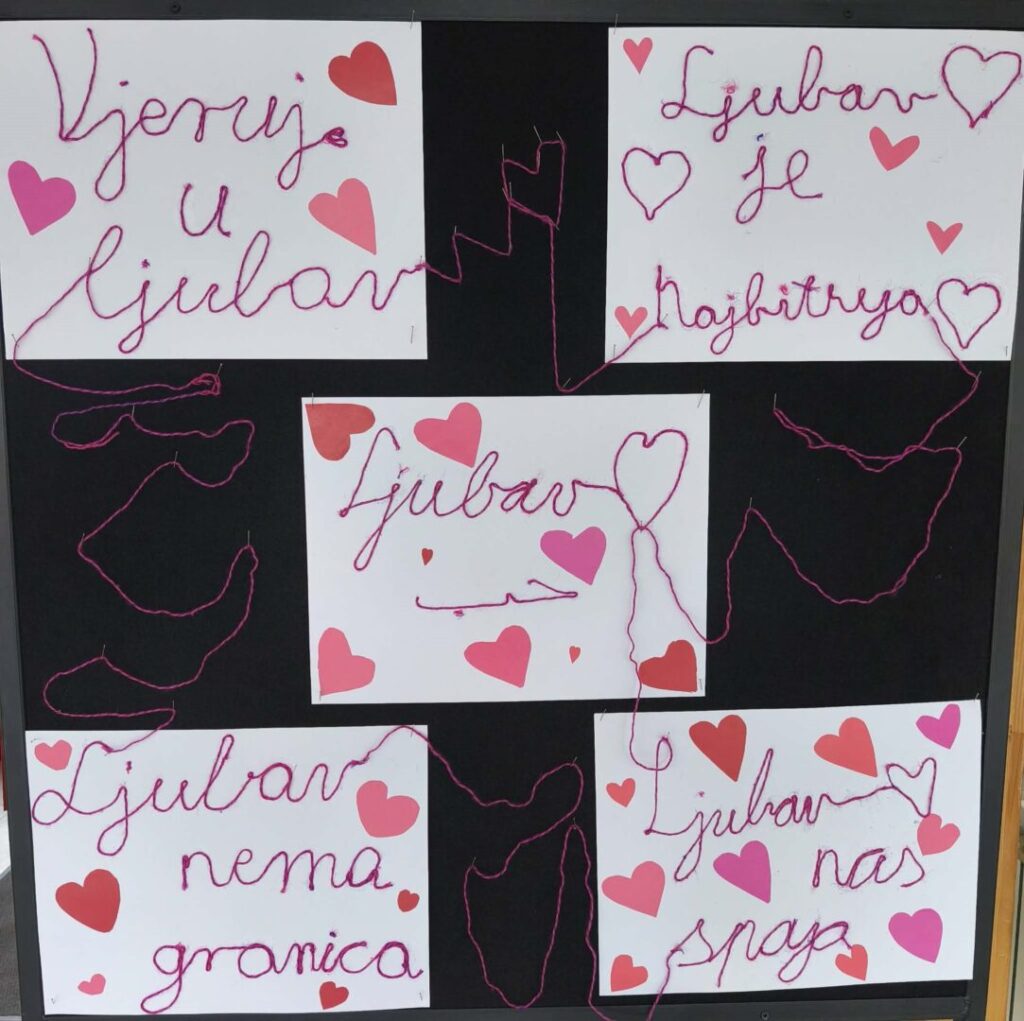 Vjeruj
u
ljubav
Ljubav
je
najbitnija
Ljubav
حب
Ljubav
nema
granica
Ljubav
nas
spaja